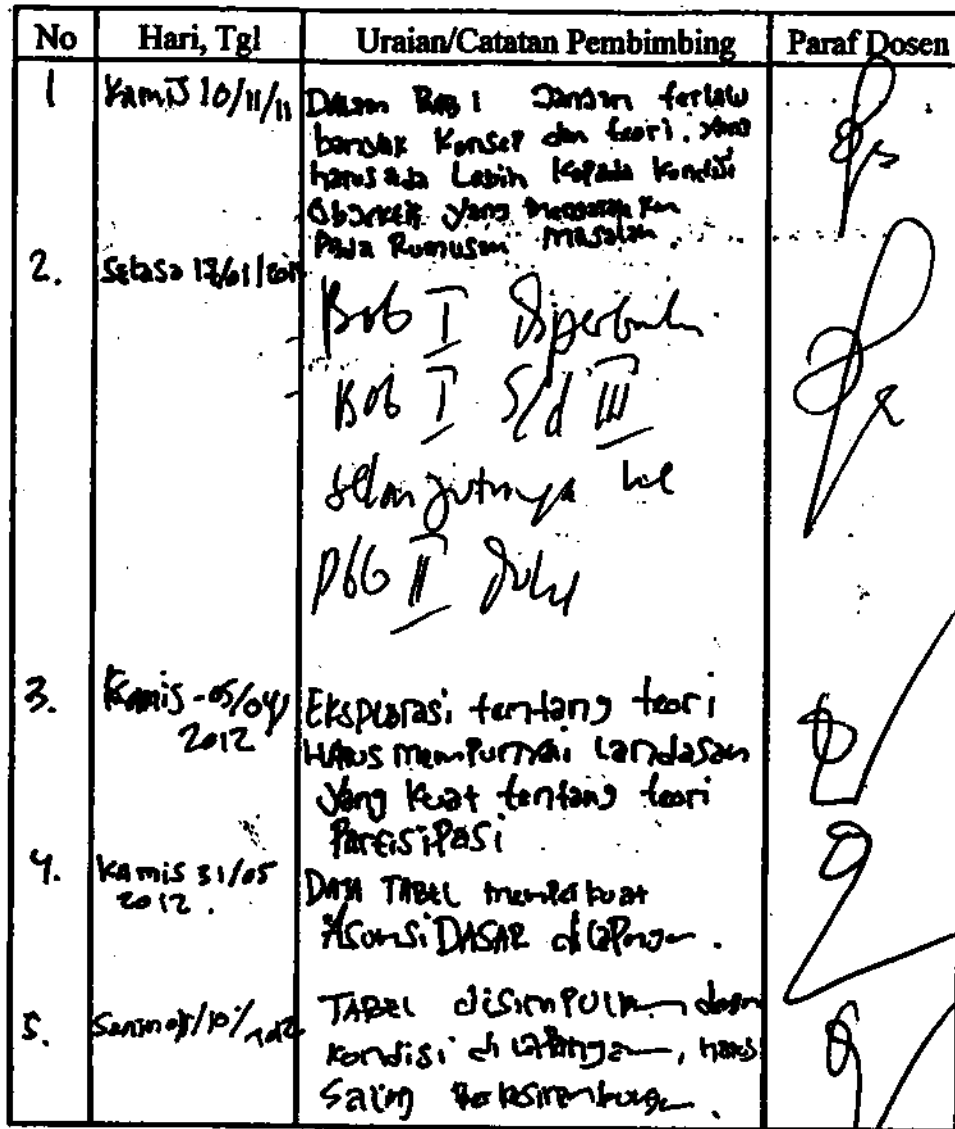 No Hari, Tgl Uraian/Catatan Pembimbing Paraf Dosen
1 Kamis 10/11/11 Dalam Bab 1 Jangan terlalu
banyak Konsep dan teori. yang
harus ada Lebih Kepada Kondisi
Objektif yang mengarahkan
Pada Rumusan masalah.
2. Selasa
Bab I diperbaiki
Bab I S/d III
selanjutnya ke
Pbb II dulu
3. Kamis - 05/04/ Eksplorasi tentang teori
2012 HARUS mempunyai Landasan
yang kuat tentang teori
Partisipasi
4. Kamis 31/05 DATA TABEL memperkuat
2012. Asumsi DASAR di lapangan.
5. Senin TABEL disimpulkan dengan
kondisi di lapangan, harus
Saling